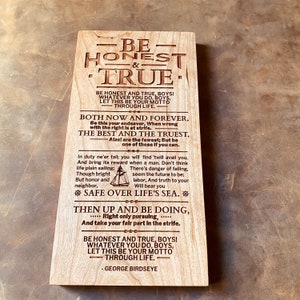 BE
HONEST
&
TRUE
BE HONEST AND TRUE, BOYS!
WHATEVER YOU DO, BOYS,
LET THIS BE YOUR MOTTO
THROUGH LIFE.
BOTH NOW AND FOREVER,
Be this your endeavor, When wrong
with the right is at strife.
THE BEST AND THE TRUEST,
Alas! are the fewest; But be
one of these if you can.
In duty ne'er fail; you will find 'twill avail you,
And bring its reward when a man. Don't think
life plain sailing; There's danger of failing,
Though bright soon the future to be;
But honor and labor, And truth to your
neighbor, Will bear you
SAFE OVER LIFE'S SEA.
THEN UP AND BE DOING,
Right only pursuing,
And take your fair part in the strife.
BE HONEST AND TRUE, BOYS!
WHATEVER YOU DO, BOYS,
LET THIS BE YOUR MOTTO
THROUGH LIFE.
- GEORGE BIRDSEYE